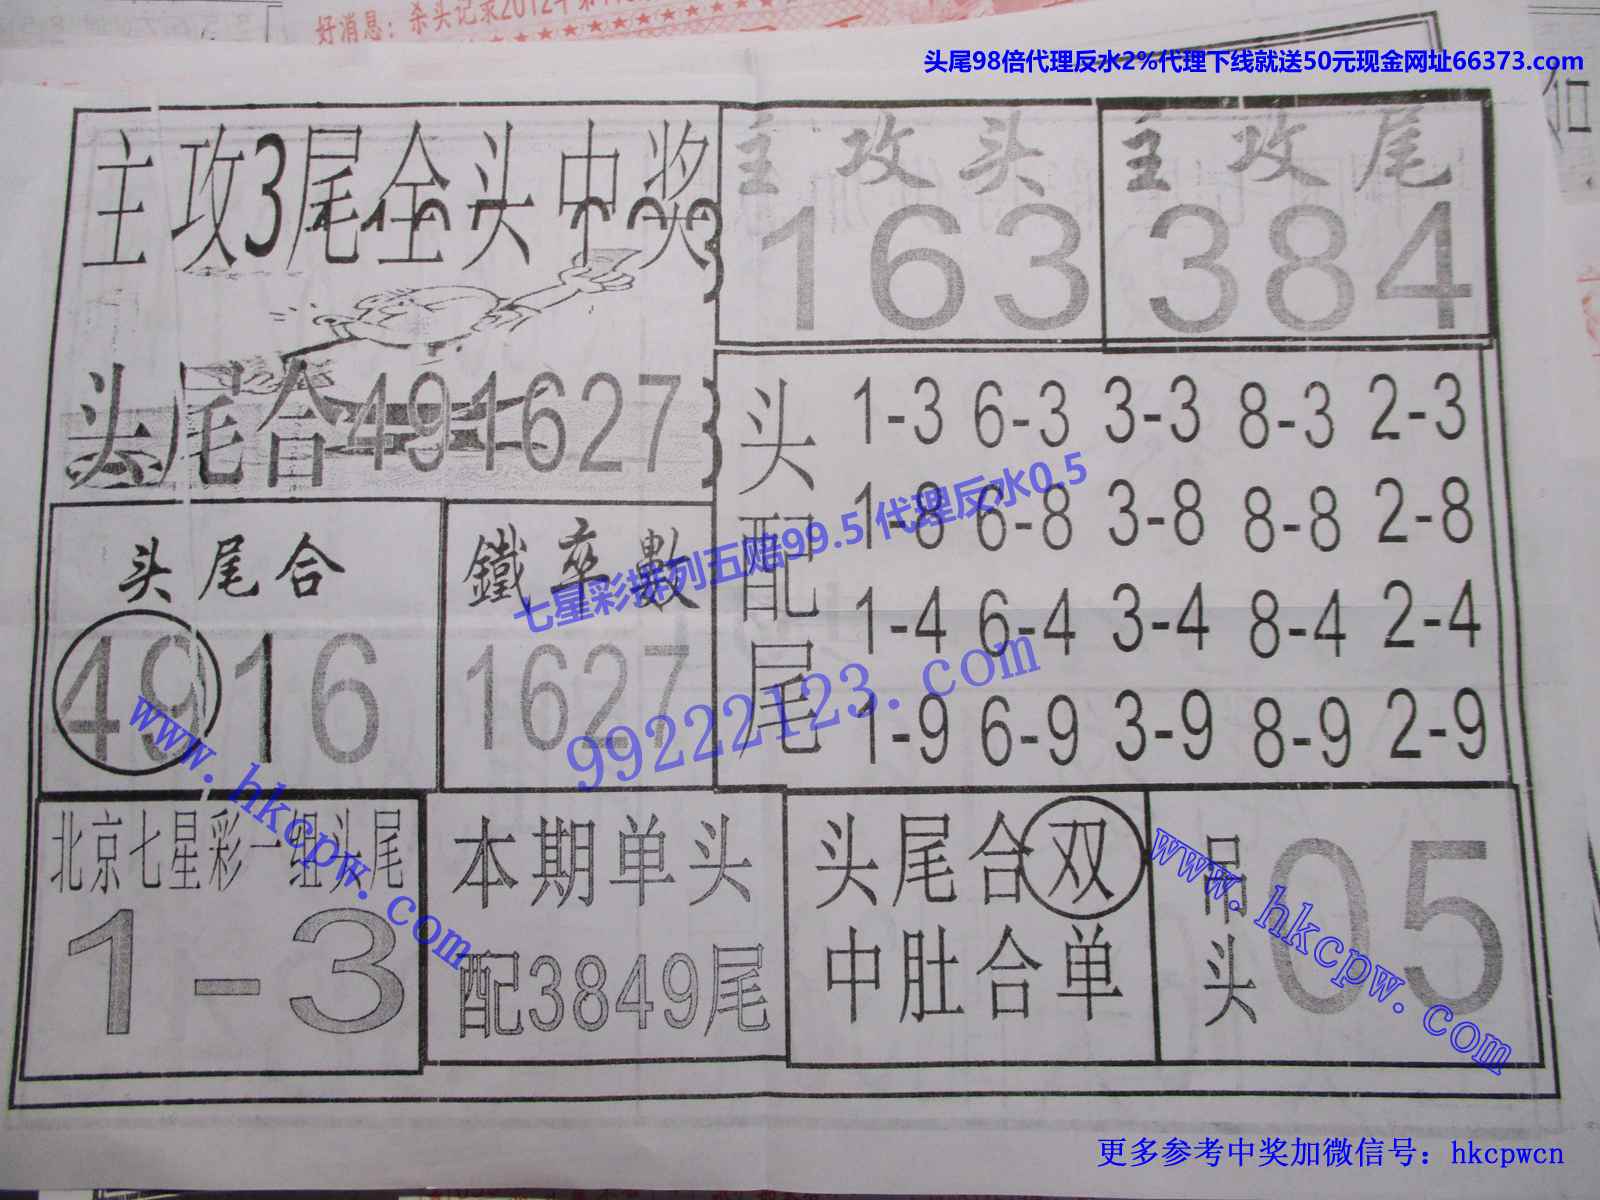 好消息：杀头记录2012年第
头尾98倍代理反水2%代理下线就送50元现金网址66373.com
主攻3尾全头中奖
主攻头
163
主攻尾
384
头尾合491627
头配尾
1-3 6-3 3-3 8-3 2-3
1-8 6-8 3-8 8-8 2-8
1-4 6-4 3-4 8-4 2-4
1-9 6-9 3-9 8-9 2-9
头尾合
4916
鐵率數
1627
七星彩排列五赔99.5 代理反水0.5
99222123.com
www.hkcpw.com
北京七星彩一组头尾
1-3
本期单头
配3849尾
头尾合双
中肚合单
吊头
05
www.hkcpw.com
更多参考中奖加微信号：hkcpwcn